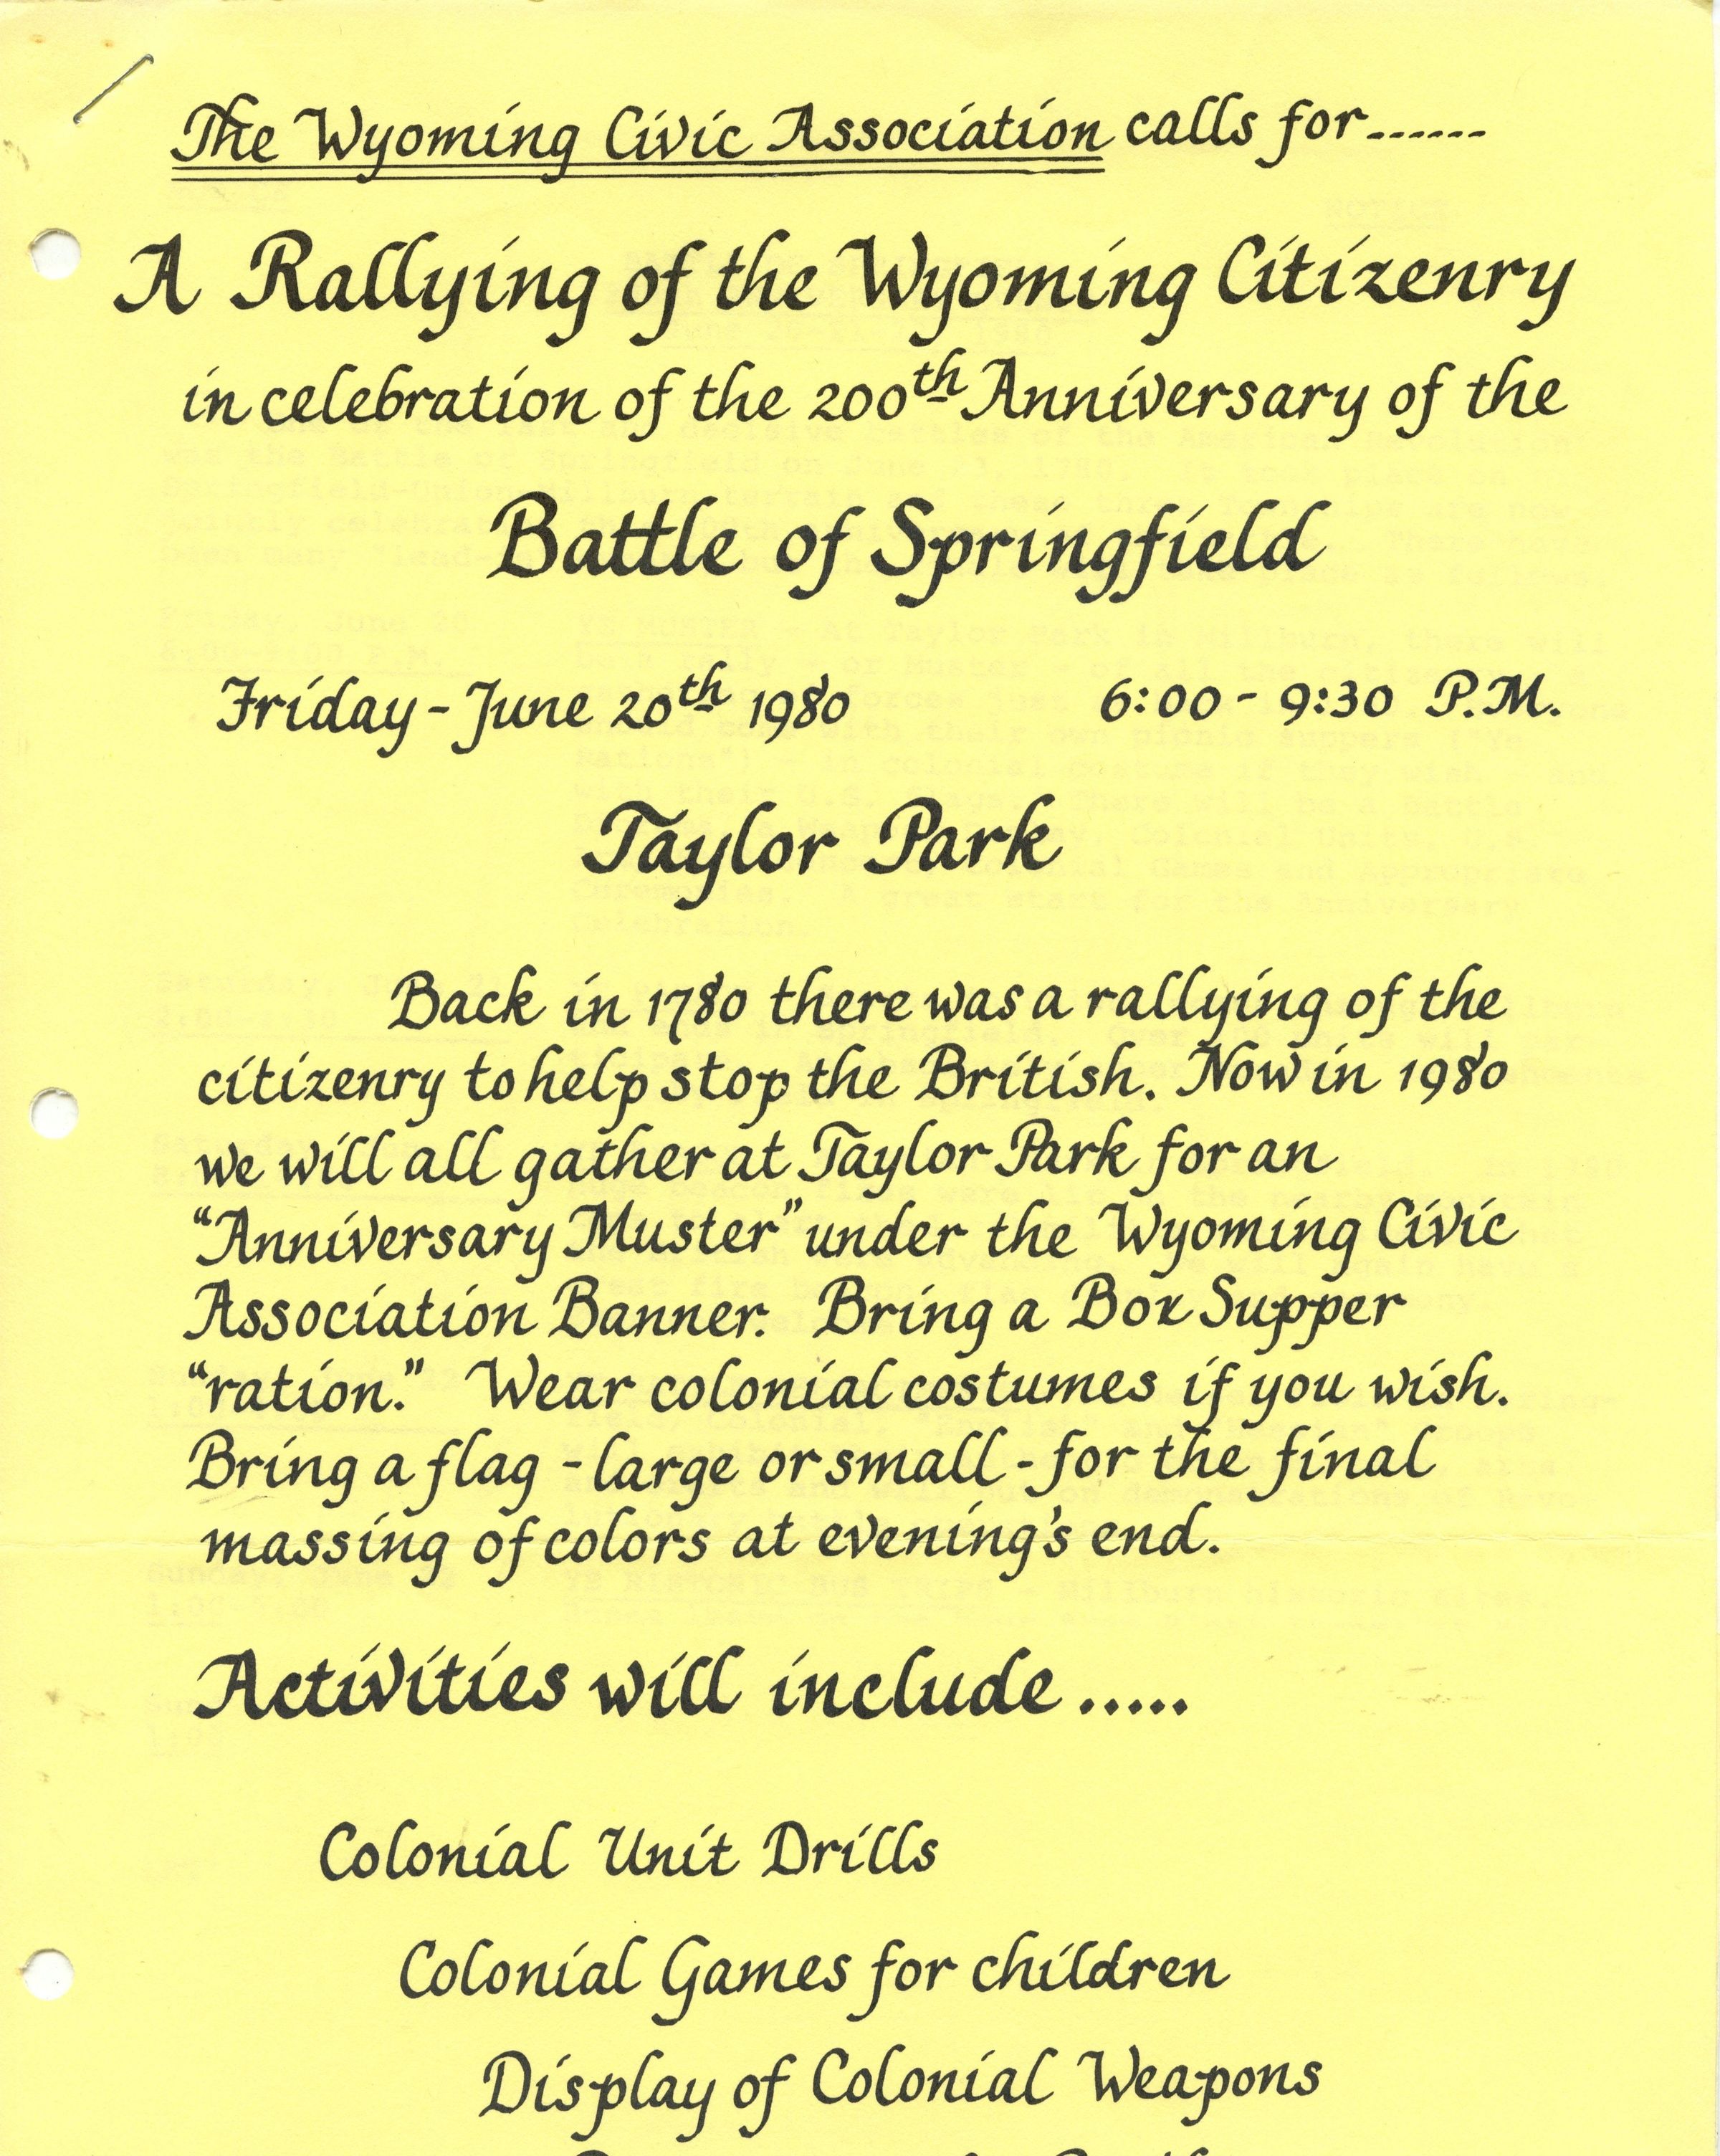 The Wyoming Civic Association calls for......
A Rallying of the Wyoming Citizenry
in celebration of the 200th Anniversary of the
Battle of Springfield
Friday - June 20th 1980 6:00 - 9:30 P.M.
Taylor Park
Back in 1780 there was a rallying of the
citizenry to help stop the British. Now in 1980
we will all gather at Taylor Park for an
"Anniversary Muster" under the Wyoming Civic
Association Banner. Bring a Box Supper
"ration." Wear colonial costumes if you wish.
Bring a flag - large or small - for the final
massing of colors at evening's end.
Activities will include.....
Colonial Unit Drills
Colonial Games for children
Display of Colonial Weapons